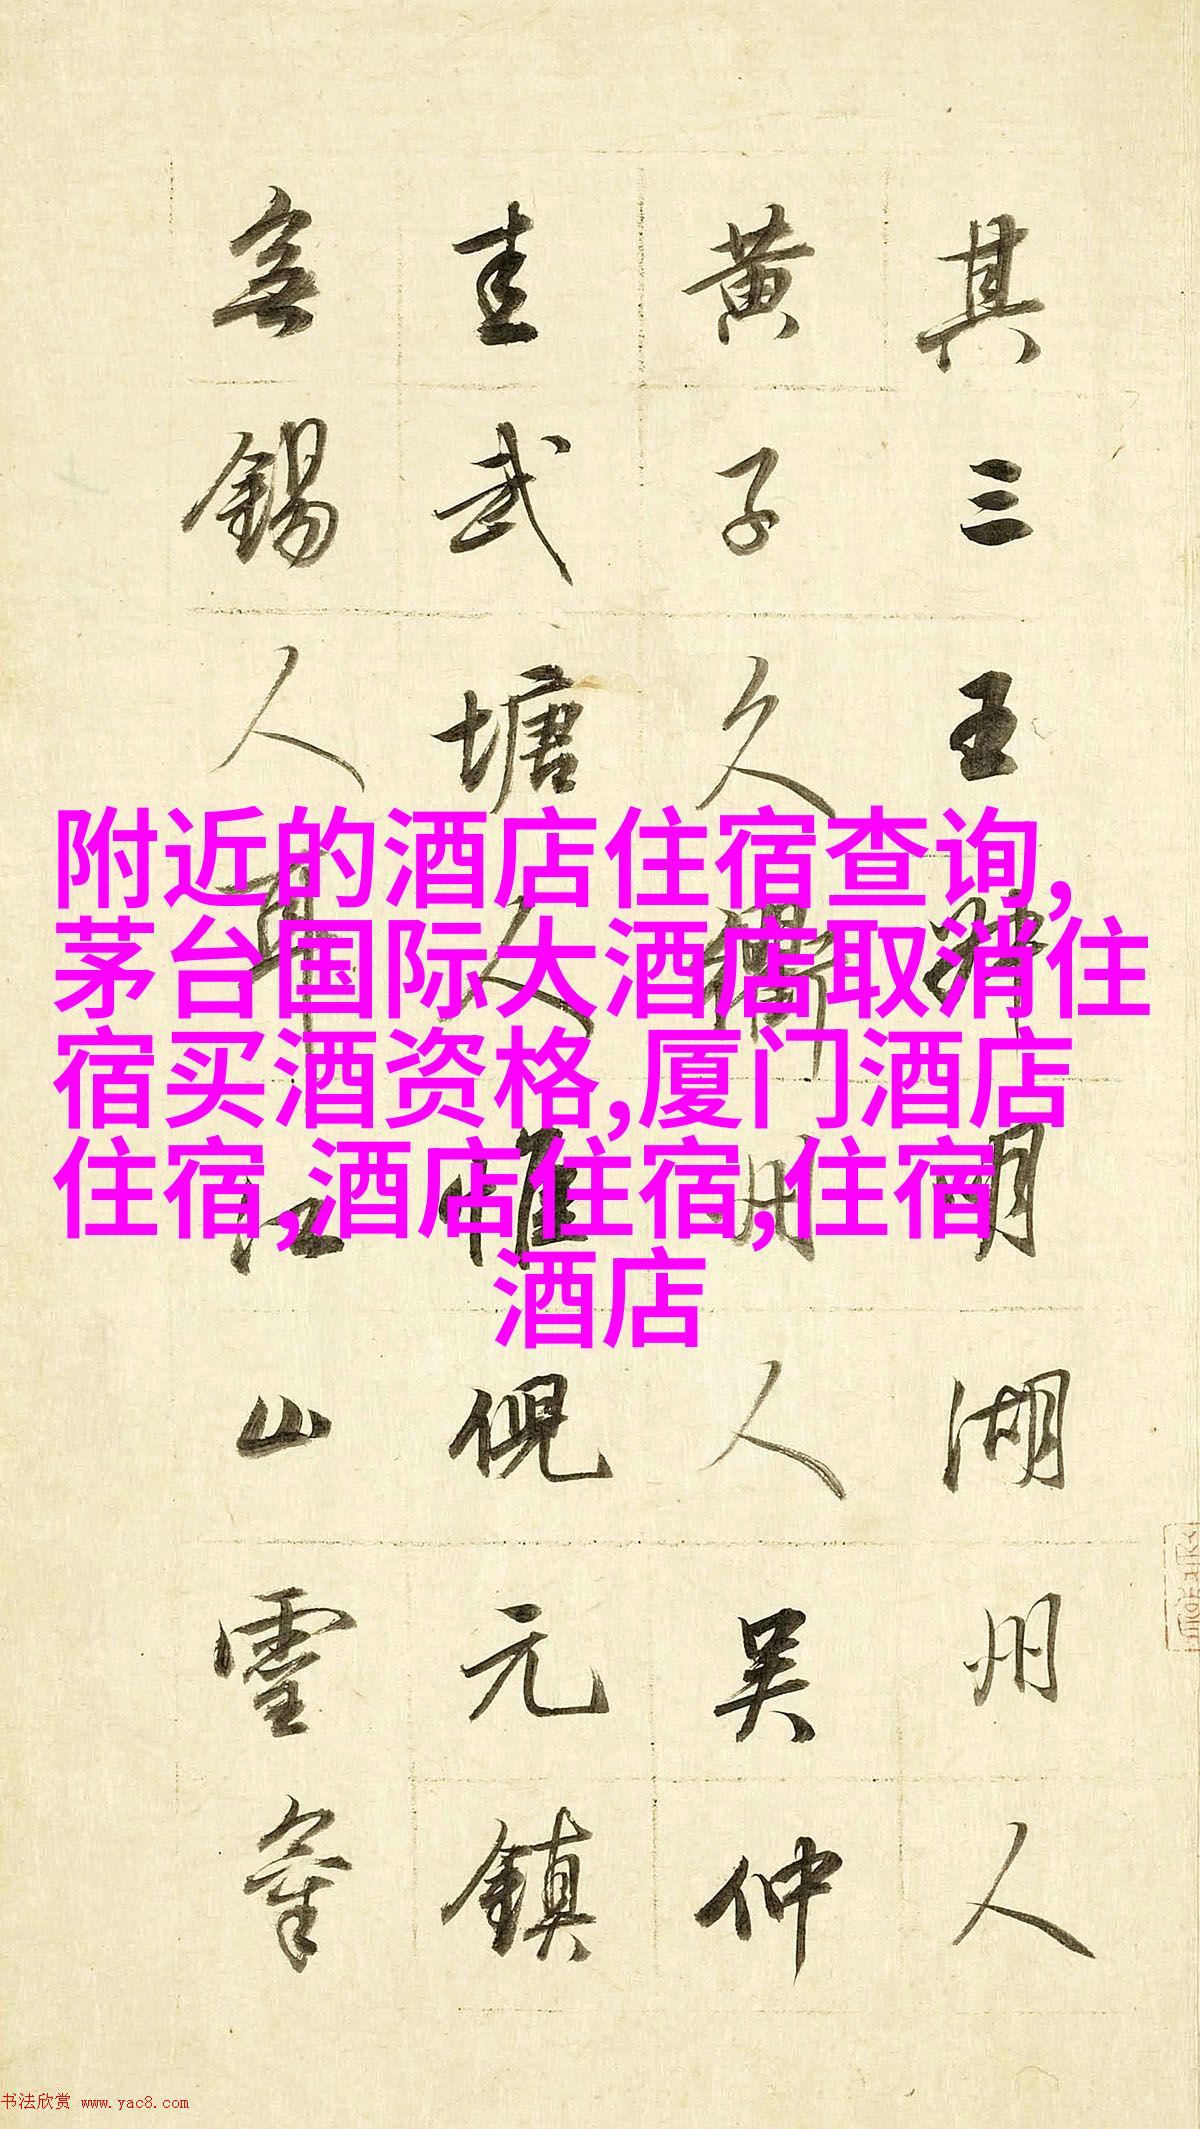 附近的酒店住宿查询,
茅台国际大酒店取消住
宿买酒资格,厦门酒店
住宿,酒店住宿,住宿
酒店
其三王叔明湖州人
黄子久衢州人吴仲
圭武塘人惟倪元鎮
無錫人耳江山靈氣
书法欣赏 www.yac8.com